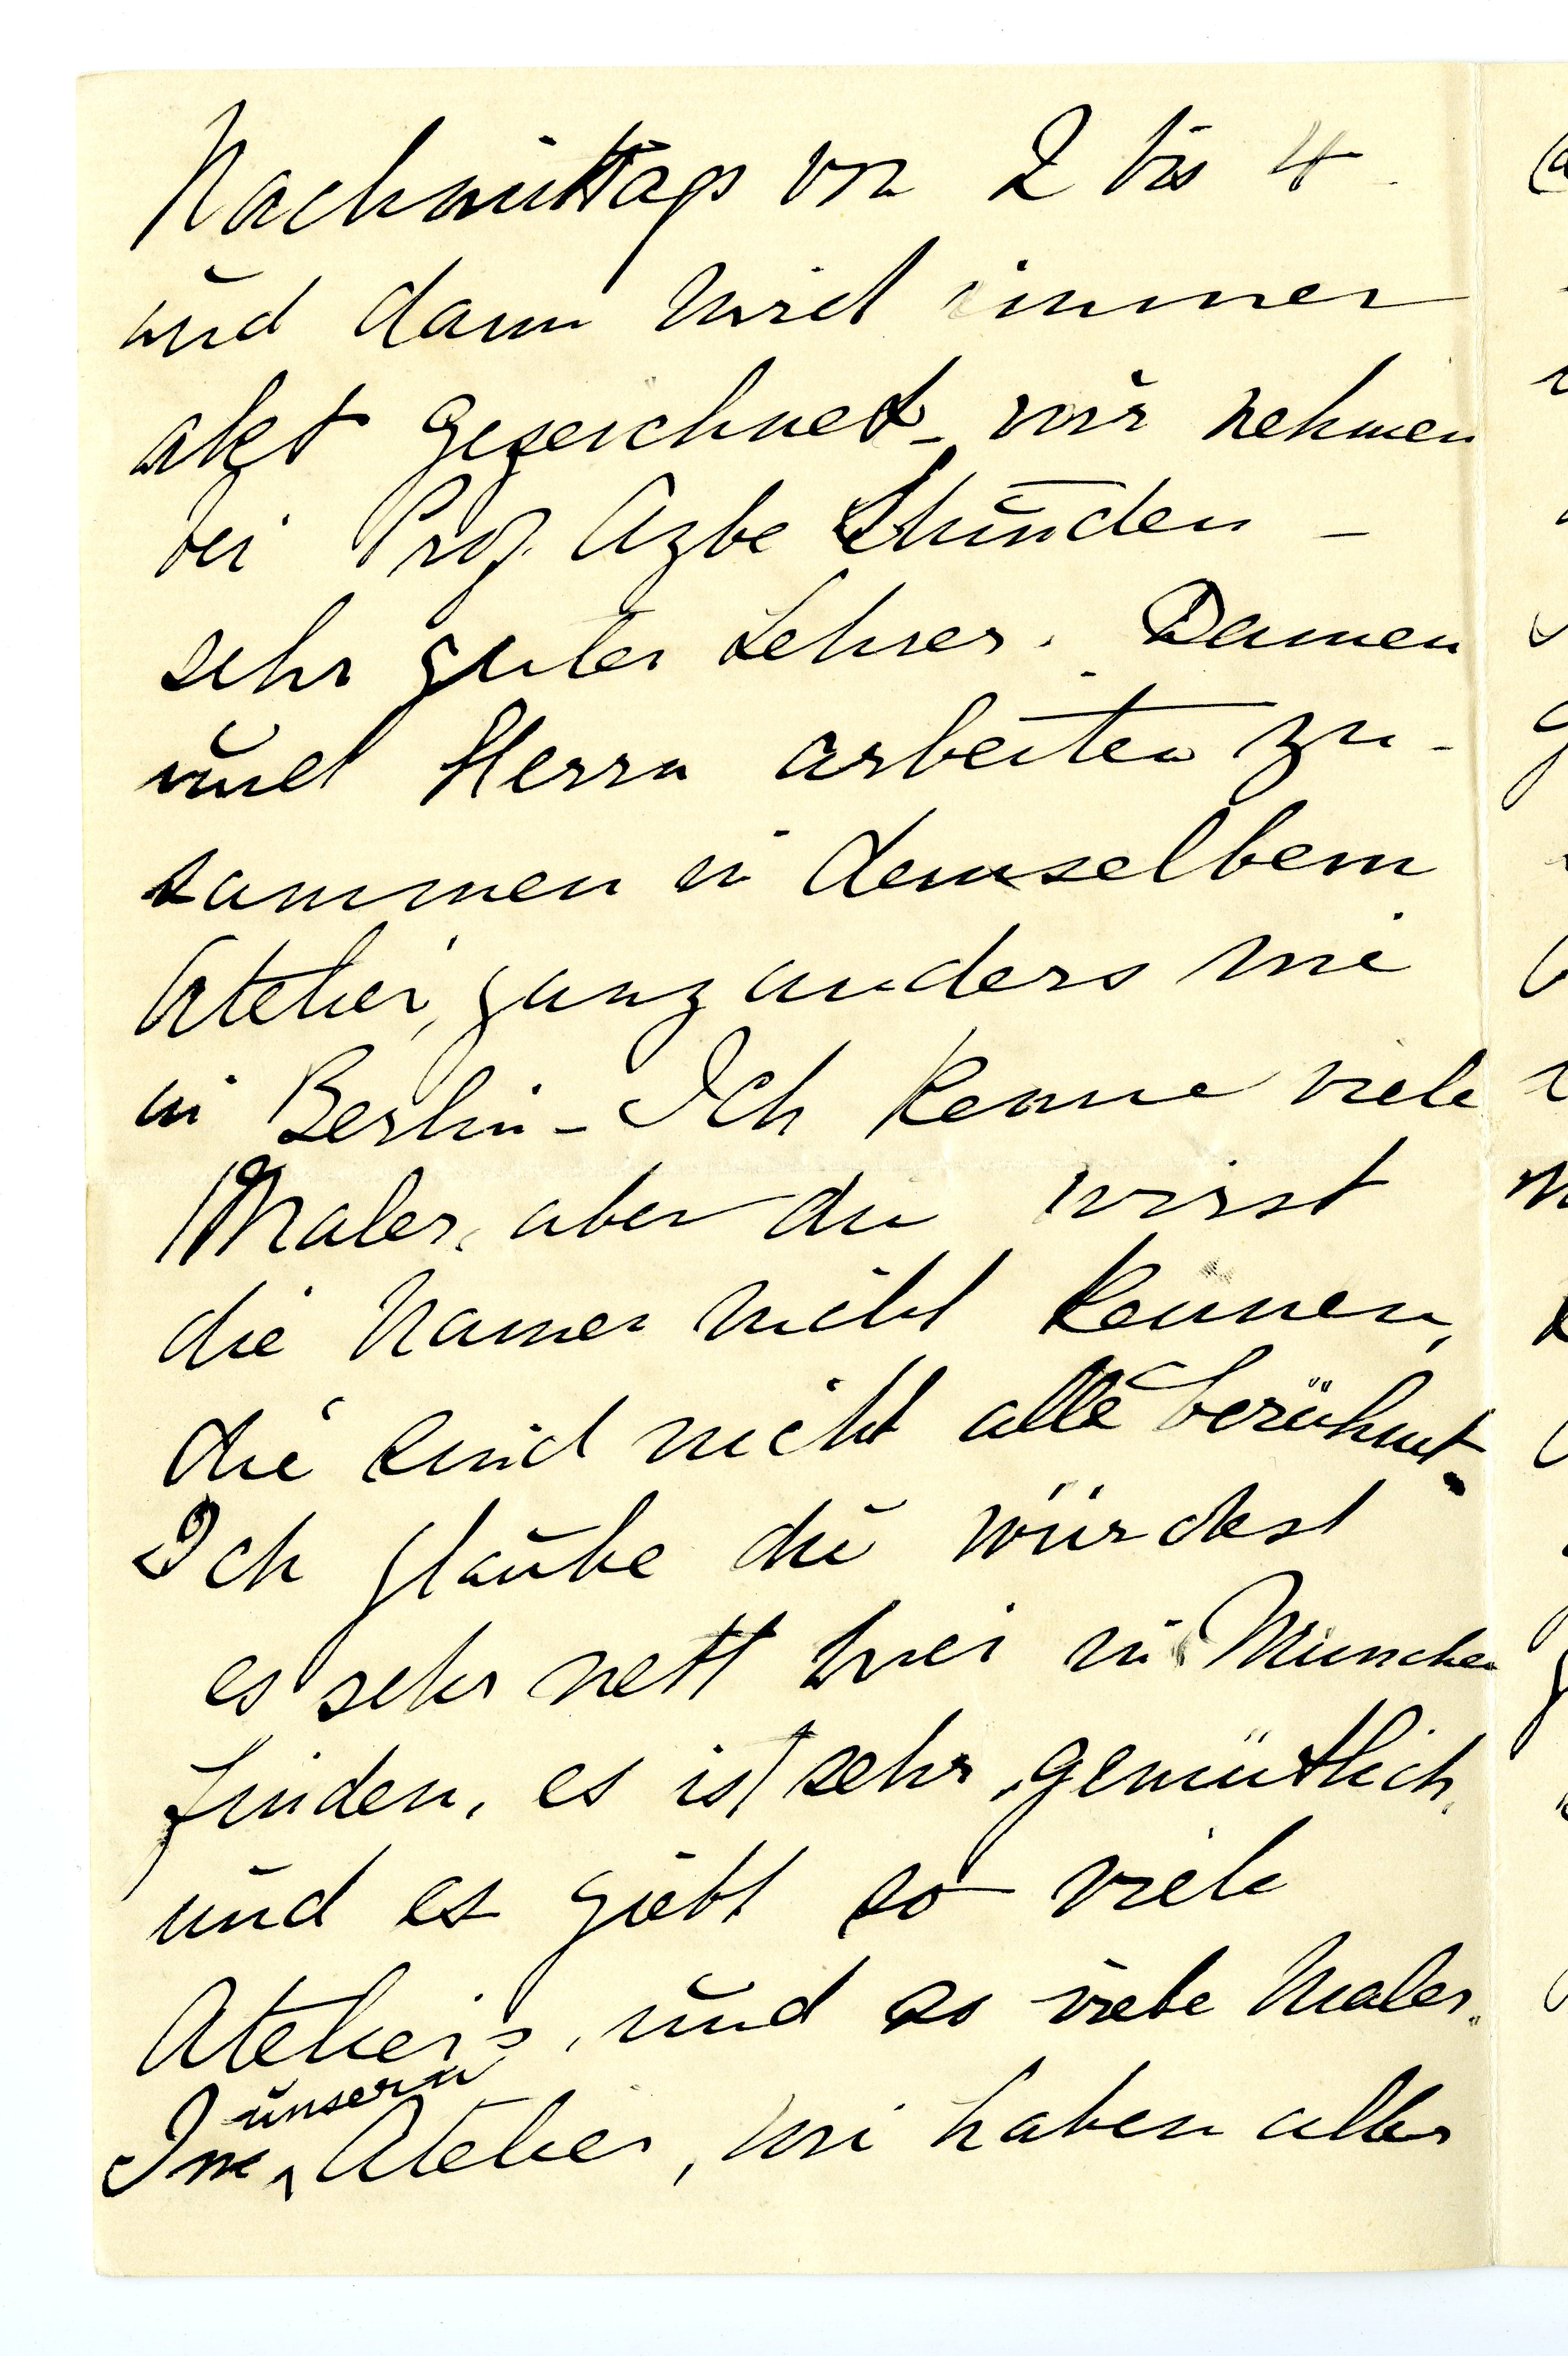 Nachmittags von 2 bis 4
und dann wird immer
akt gezeichnet – wir nehmen
bei Prof. Azbe Stunden –
sehr guter Lehrer. Damen
und Herrn arbeiten zu-
sammen in demselbem
Atelier, ganz anders wie
in Berlin – Ich kenne viele
Maler, aber du wirst
die Namen nicht kennen,
die sind nicht alle berühmt.
Ich glaube du würdest
es sehr nett hier in München
finden, es ist sehr gemütlich,
und es giebt so viele
Ateliers, und so viele Maler.
unsern
In Atelier, wi haben alle